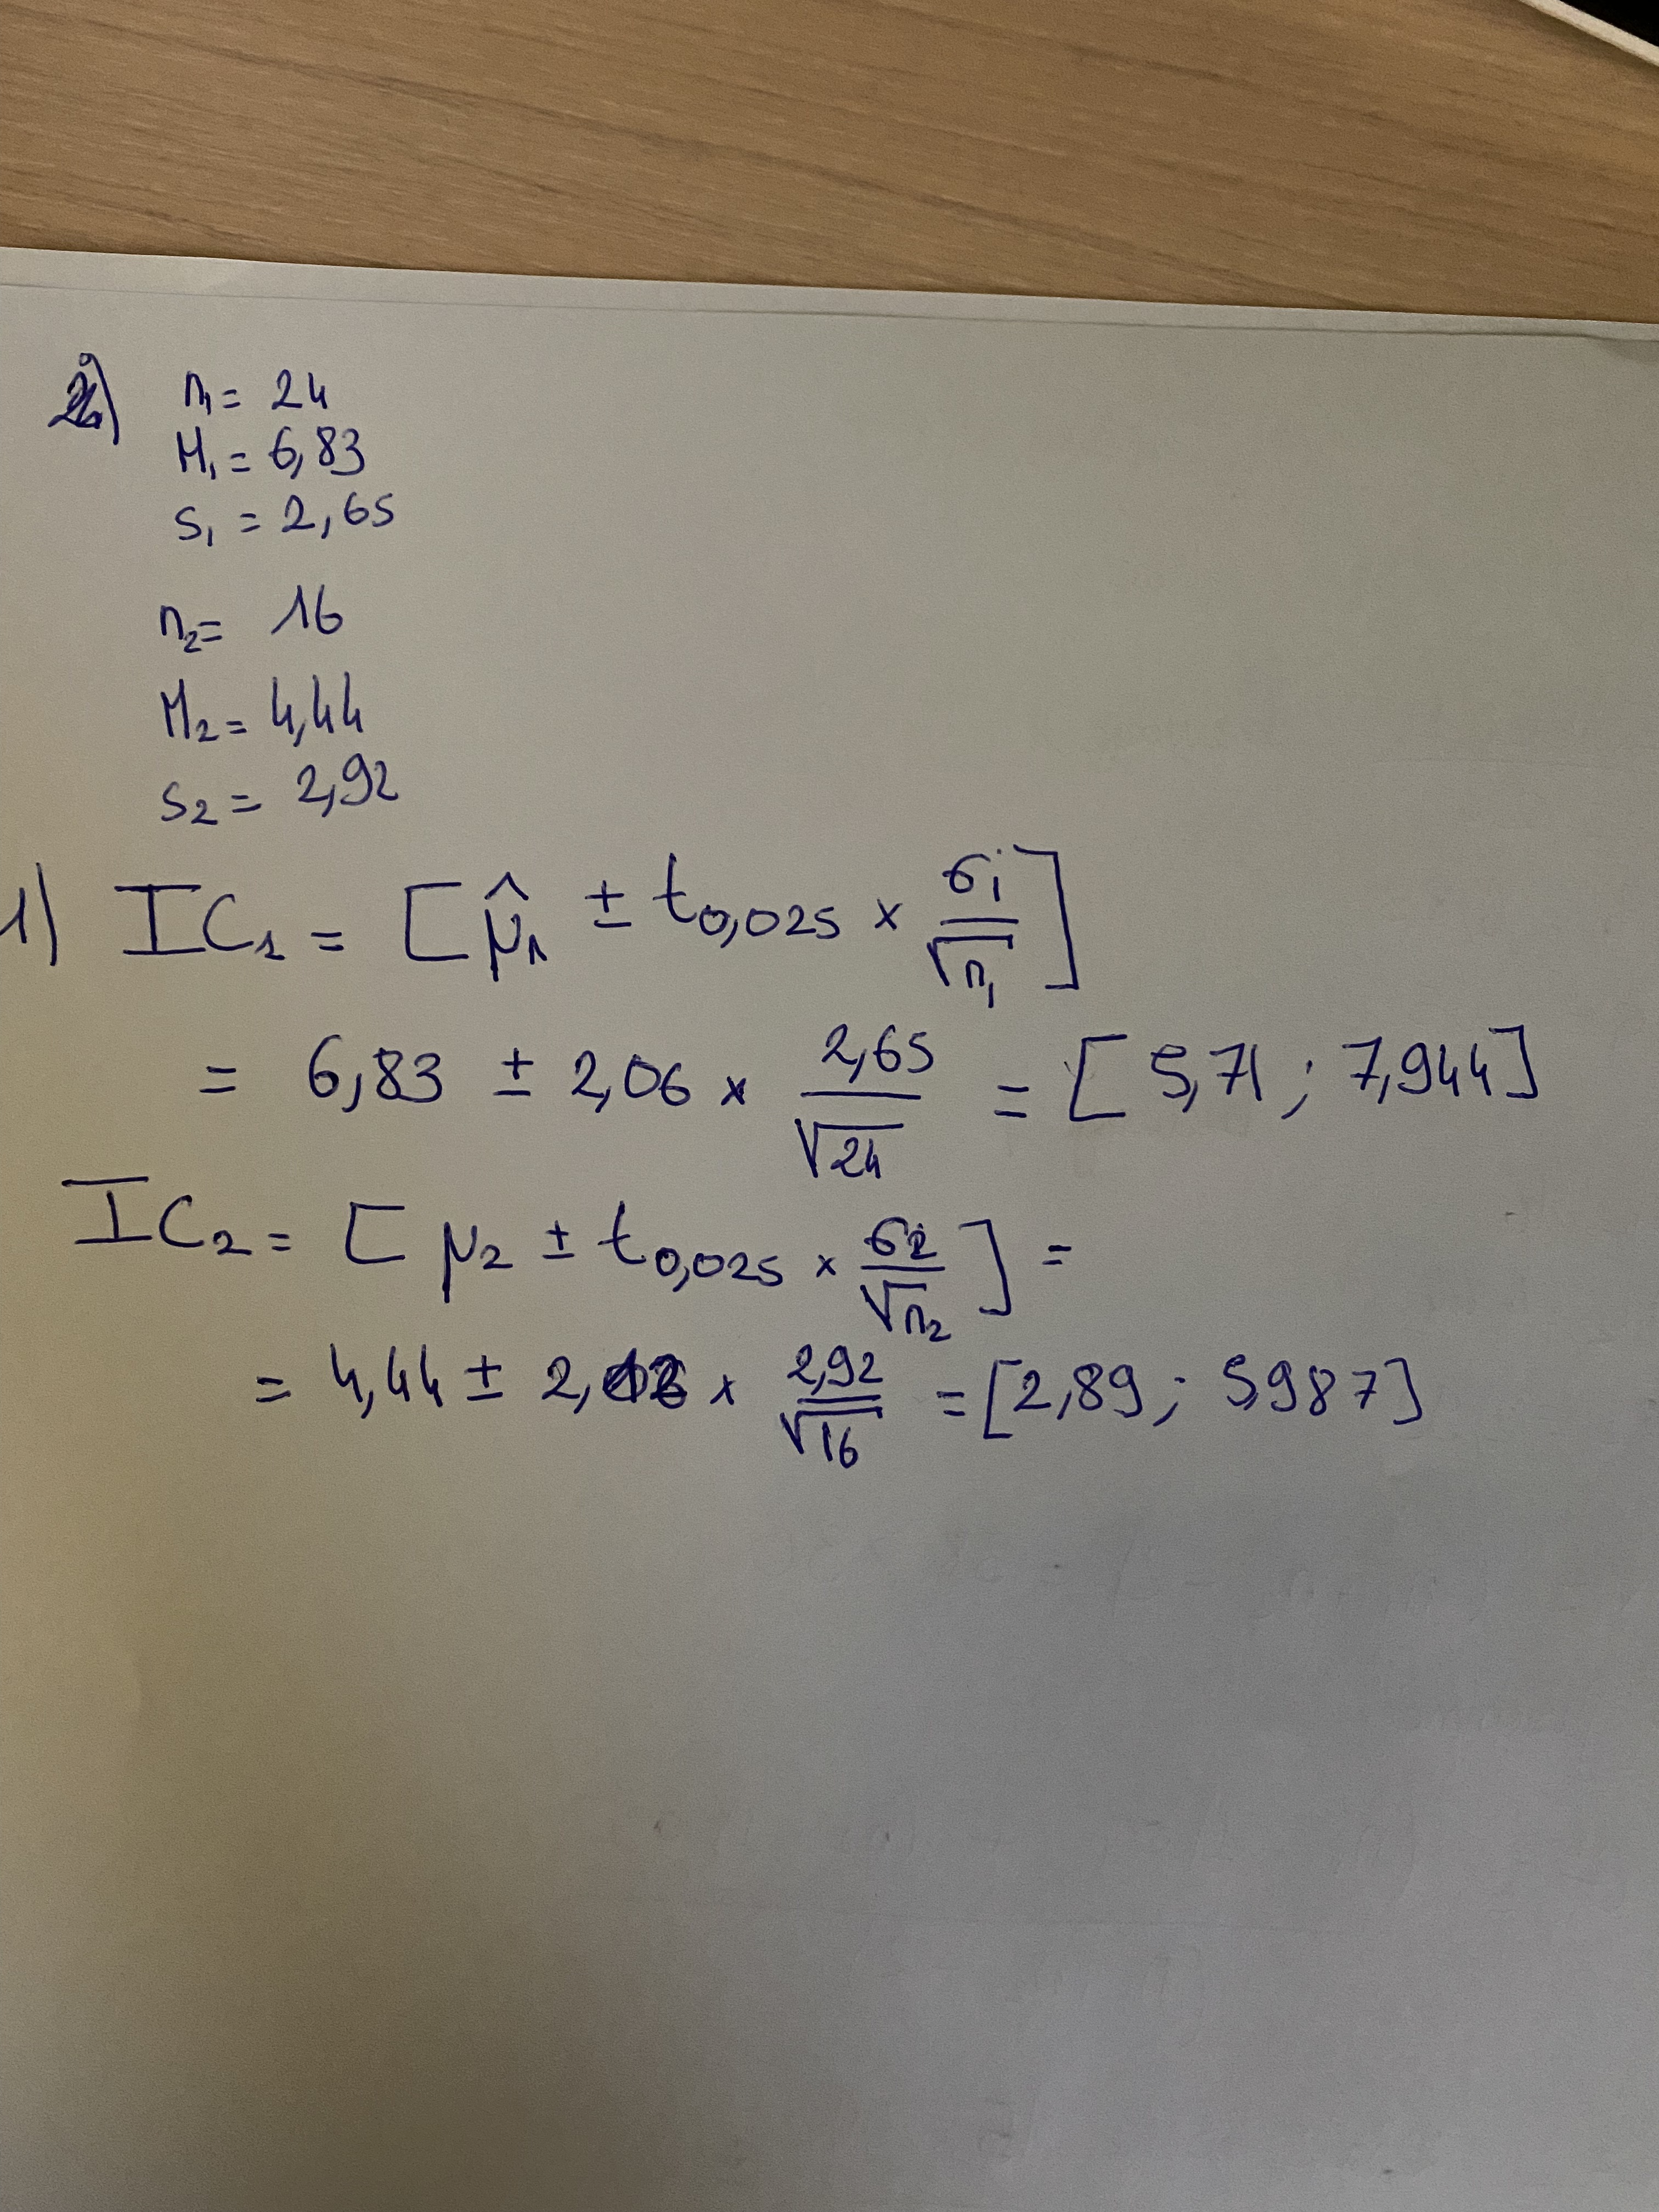 n₁ = 24
M₁ = 6,83
S₁ = 2,65
n₂ = 16
M₂ = 4,44
S₂ = 2,92
1) IC₁ = [ μ̂₁ ± t₀,₀₂₅ × σ₁/√n₁ ]
= 6,83 ± 2,06 × 2,65/√24 = [ 5,71 ; 7,944 ]
IC₂ = [ μ₂ ± t₀,₀₂₅ × σ₂/√n₂ ] =
= 4,44 ± × 2,92/√16 = [ 2,89 ; 5,987 ]